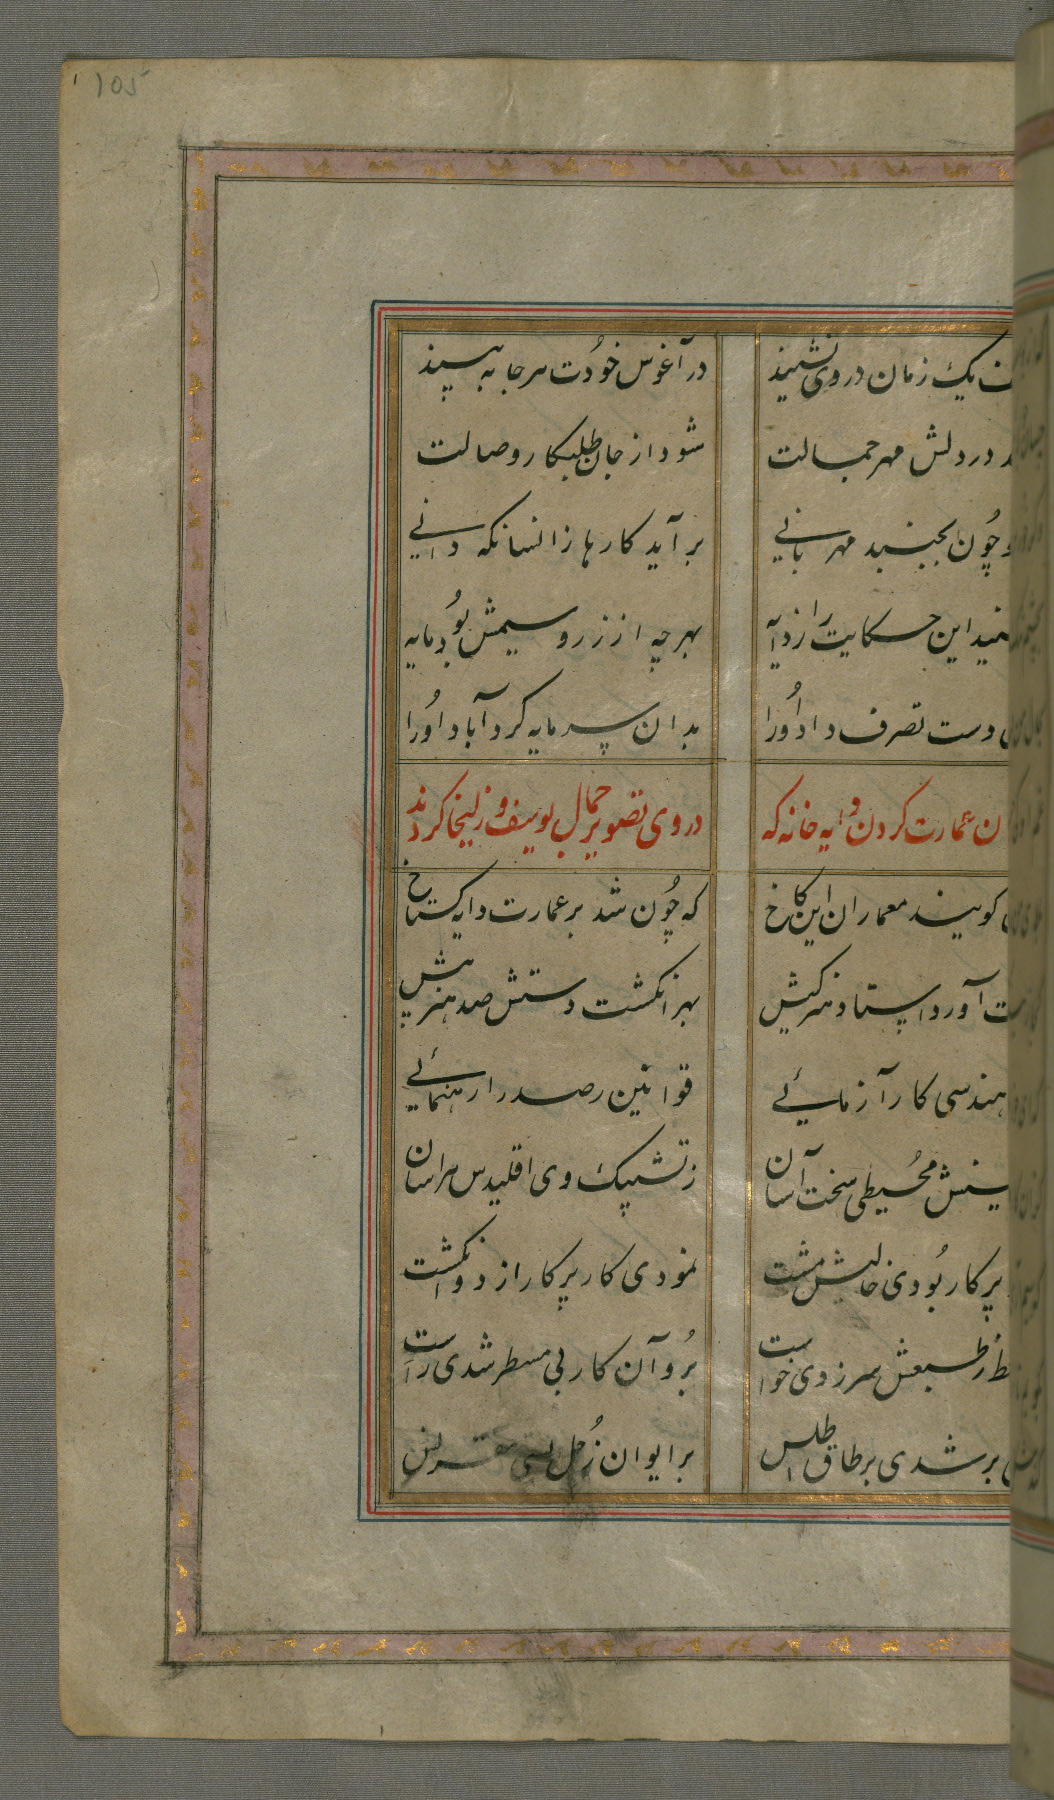 105
یک زمان در وی نشیند در آغوش خودت هر جا به بیند
در دلش مهر جمالت شود از جان طلبکار وصالت
چون بجنبد مهربانی برآید کارها زانسانکه دانی
این حکایت را ز دایه بهر چه از زر و سیمش بود مایه
دست تصرف داد او را بدان سرمایه کرد آباد او را
عمارت کردن دایه خانه که در وی تصویر جمال یوسف و زلیخا کردند
کویند معماران این کاخ که چون شد بر عمارت دایه کستاخ
آورد استاد هنرکیش بهر انکشت دستش صد هنر بیش
هندسی کار آزمائی قوانین رصد را رهنمائی
سخت آسان ز تشکیک وی اقلیدس هراسان
پرکار بودی خالیش مشت نمودی کار پرکار از دو انکشت
طبعش سر زدی خواست برو آن کار بی مسطر شدی راست
بر شدی بر طاق اطلس بر ایوان زحل بستی مقرنس